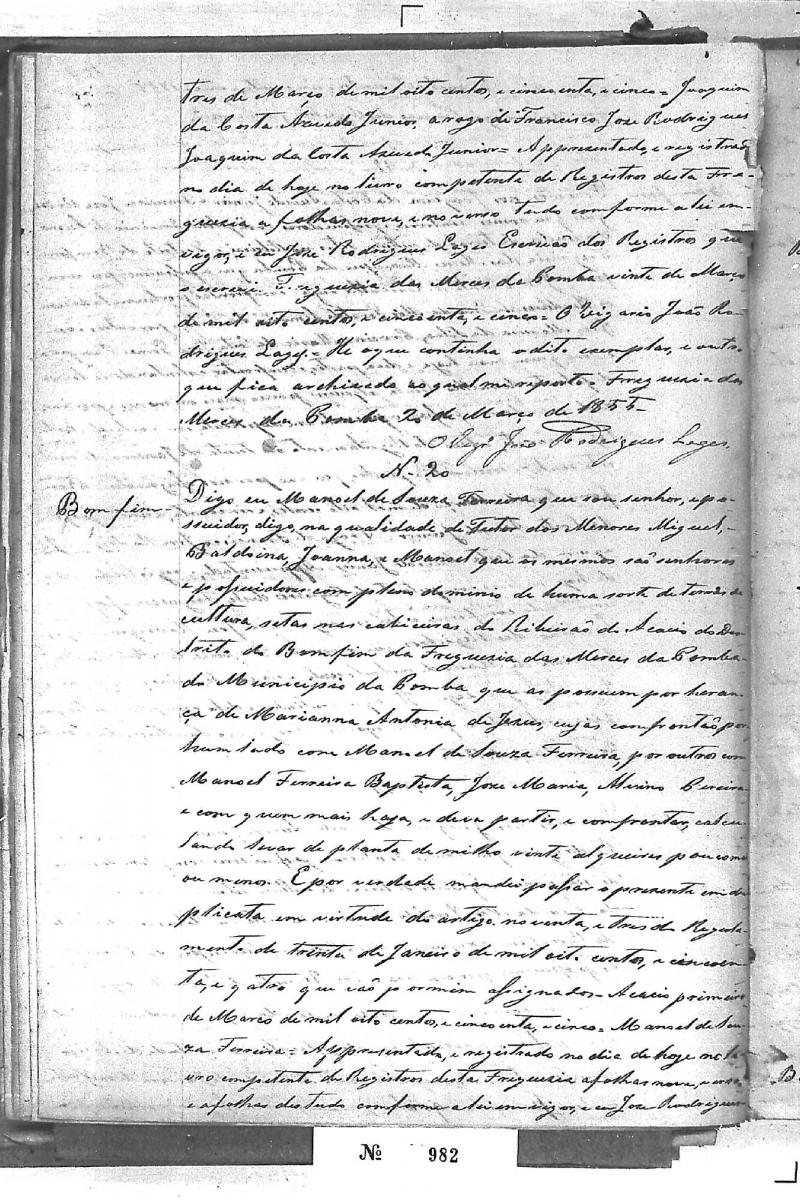 tres de Março de mil oito centos, e cincoenta, e cinco = Joaquim
da Costa Azevedo Junior, a rogo de Francisco Joze Rodrigues
Joaquim da Costa Azevedo Junior = Appresentado, e registrado
no dia de hoje no livro competente de Registros desta Fre-
guezia a folhas nove, e no verso tudo conforme a lei em
vigor, e eu Joze Rodrigues Lages Escrivão dos Registros que
o escrevi. Freguezia das Merces da Pomba vinte de Março
de mil oito centos, e cincoenta, e cinco = O Vigario João Ro-
drigues Lages = He o que continha o dito exemplar, e outro
que fica archivado ao qual me reporto. Freguezia das
Merces da Pomba 20 de Março de 1855 -
O Vigr.º João Rodrigues Lages.
N. 20
Bom fim -
Digo eu Manoel de Souza Ferreira que sou senhor, e po-
ssuidor, digo, na qualidade de Tutor dos Menores Miguel,
Baldoina, Joanna, e Manoel que os mesmos são senhores
e possuidores com pleno dominio de huma sorte de terras de
cultura, setas nas cabiceiras do Ribeirão do Acacio do Des-
trito do Bomfim da Freguezia das Merces da Pomba
do Municipio da Pomba que as possuem por heran-
ça de Marianna Antonia de Jezus, cujas confrontão por
hum lado com Manoel de Souza Ferreira, por outros com
Manoel Ferreira Baptista, Joze Maria, Alvino Pereira
e com quem mais haja, e deva partir, e confrontar, calcu-
lando levar de planta de milho vinte alqueires pouco mais
ou menos. E por verdade mandei passar o presente em du-
plicata em virtude do artigo noventa, e tres do Regula-
mento de trinta de Janeiro de mil oito centos, e cincoen-
ta, e quatro que vão por mim assignados = Acacio primeiro
de Março de mil oito centos, e cincoenta, e cinco = Manoel de Sou-
za Ferreira = Appresentado, e registrado no dia de hoje no li-
vro competente de Registros desta Freguezia a folhas nove, e verso
e a folhas des tudo conforme a lei em vigor, e eu Joze Rodrigues
B
Nº 982